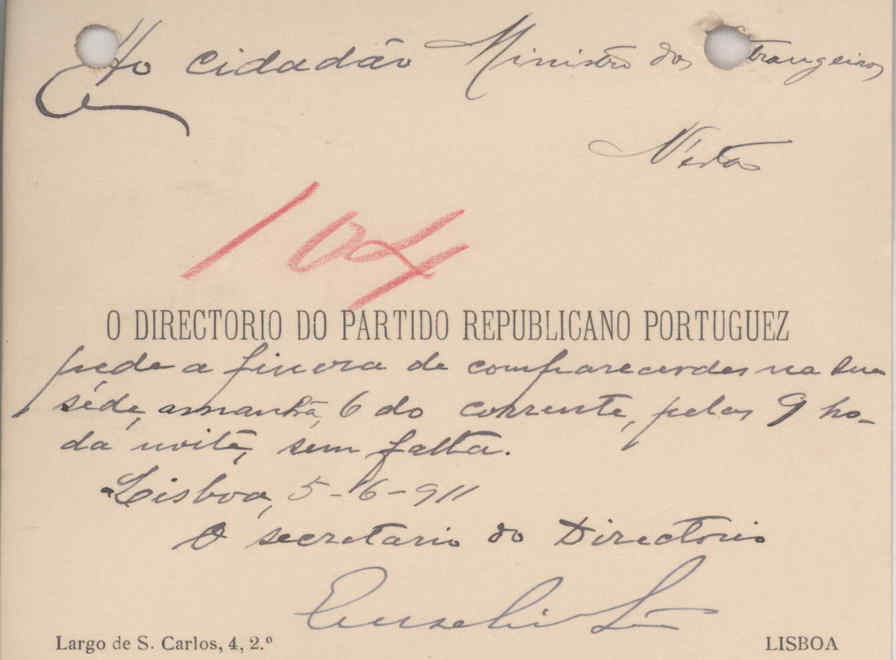 Ao cidadão Ministro dos Estrangeiros
104
O DIRECTORIO DO PARTIDO REPUBLICANO PORTUGUEZ
pede a fineza de comparecerdes na sua
séde, amanhã, 6 do corrente, pelas 9 ho-
da noite, sem falta.
Lisboa, 5-6-911
O secretario do Directorio
Eusebio Leão
Largo de S. Carlos, 4, 2.º
LISBOA